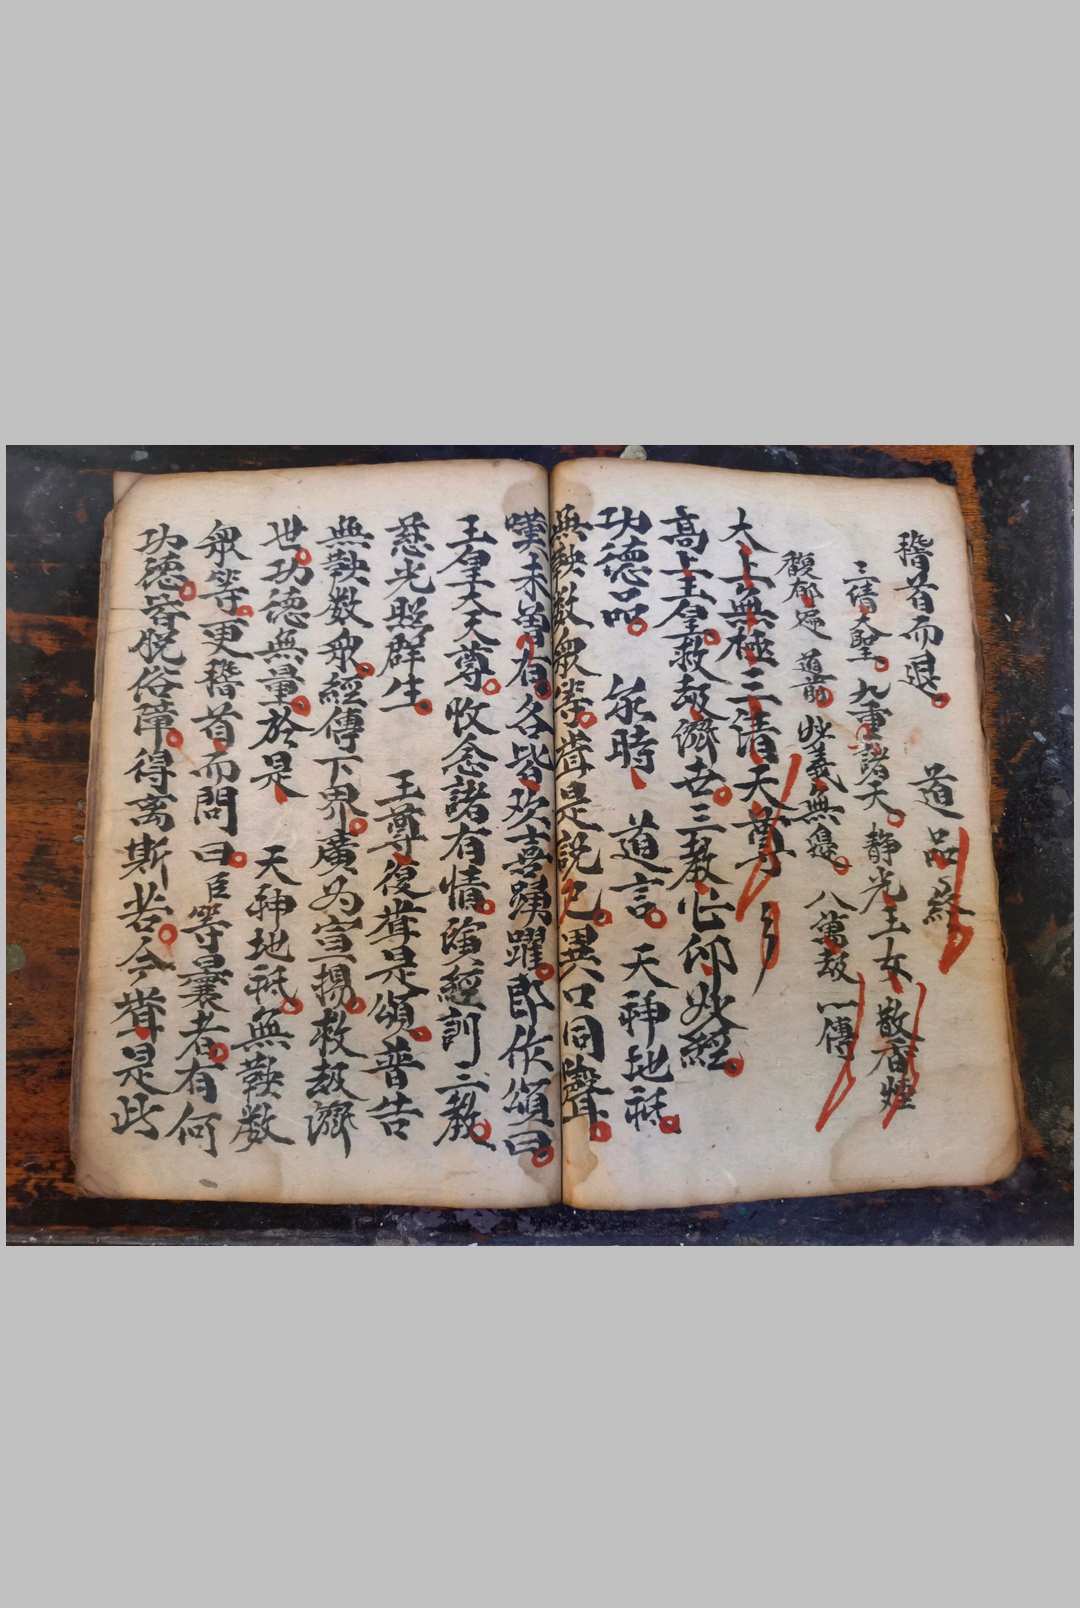 稽首而退 道品終
三清大聖 九重諸天 静光玉女 散香煙
馥郁遶 道前 妙義無邊 八萬劫一傳
大上無極三清天尊
髙上玉皇救劫濟世三教心印妙經
功德品 尒時 道言 天神地祗
無鞅数衆等 聳是説已 異口同聲
嘆未曽有 各皆欢喜踴躍 即作頌曰
玉皇大天尊 收念諸有情 演經訓三教
慈光照群生 玉尊復聳是頌 普告
無鞅数衆 經傳下界 廣为宣揚 救劫濟
世 功德無量 於是 天神地祗 無鞅数
衆等 更稽首而問曰 臣等曩者有何
功德 皆脱俗障 得离斯苦 今聳是此